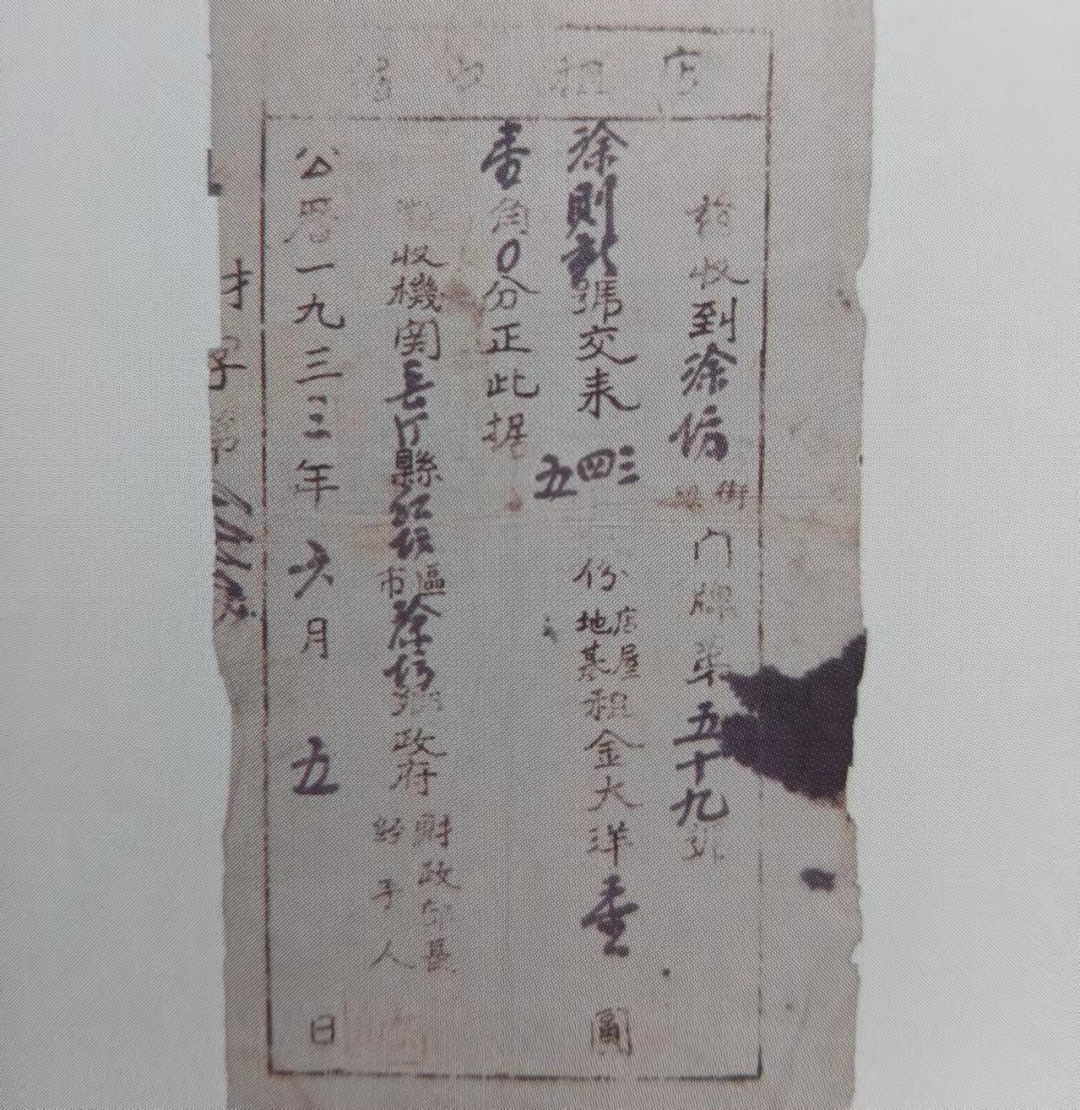 店租收據
茲收到涂坊街門牌第五十九號
涂則新號交来三四五份店屋地基租金大洋壹圓
壹角0分正此据
收機関長汀縣紅坊區市涂坊鄉政府財政部長經手人
公曆一九三三年六月五日
才字第